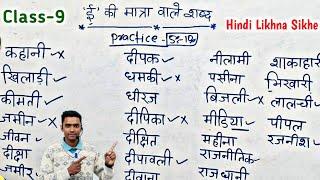 Class-9
'ई' की मात्रा वाले शब्द
Hindi Likhna Sikhe
Practice
कहानी
खिलाड़ी
कीमती
जमीन
जीवन
दीक्षा
जमीर
दीपक
धमकी
धीरज
दीपिका
दीक्षित
दीपावली
दीवाना
नीलामी
पसीना
बिजली
मीडिया
महीना
राजनीतिक
राजधानी
शाकाहारी
भिखारी
लालची
पीपल
रजनीश